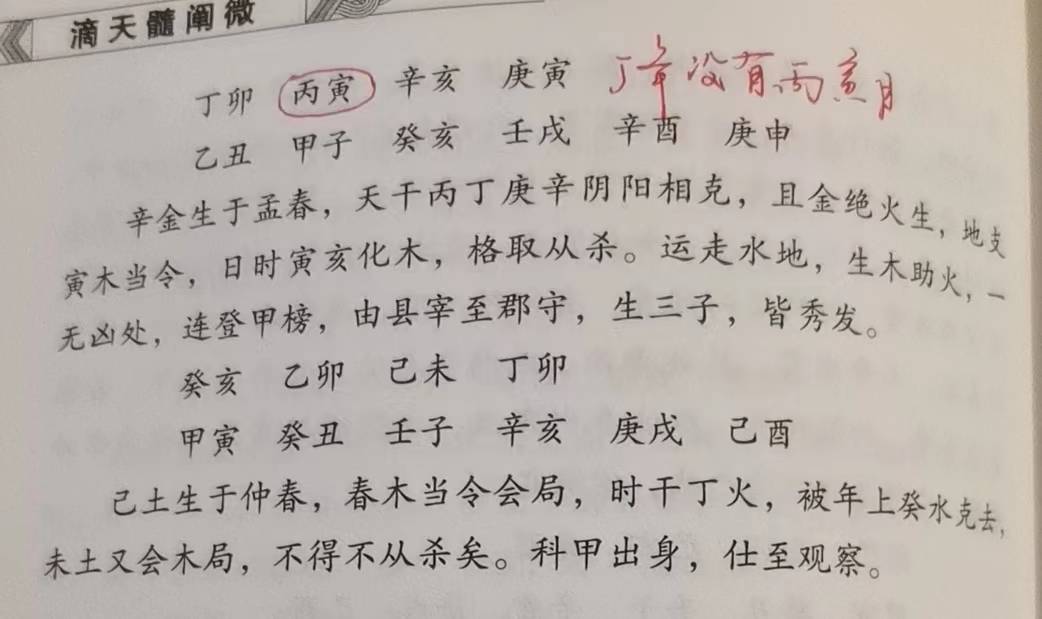 滴天髓阐微
丁卯 丙寅 辛亥 庚寅 丁年没有丙寅月
乙丑 甲子 癸亥 壬戌 辛酉 庚申
辛金生于孟春，天干丙丁庚辛阴阳相克，且金绝火生，地支
寅木当令，日时寅亥化木，格取从杀。运走水地，生木助火，一
无凶处，连登甲榜，由县宰至郡守，生三子，皆秀发。
癸亥 乙卯 己未 丁卯
甲寅 癸丑 壬子 辛亥 庚戌 己酉
己土生于仲春，春木当令会局，时干丁火，被年上癸水克去，
未土又会木局，不得不从杀矣。科甲出身，仕至观察。